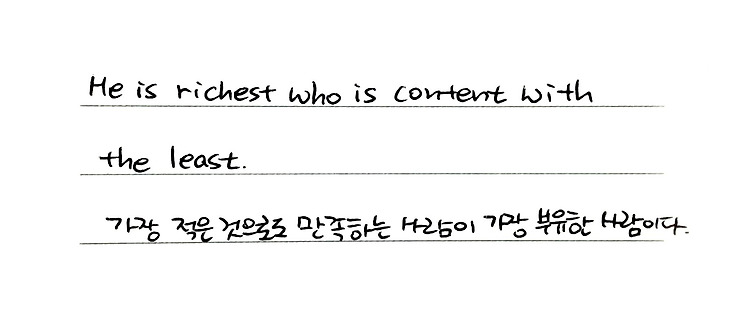 He is richest who is content with
the least.
가장 적은 것으로도 만족하는 사람이 가장 부유한 사람이다.